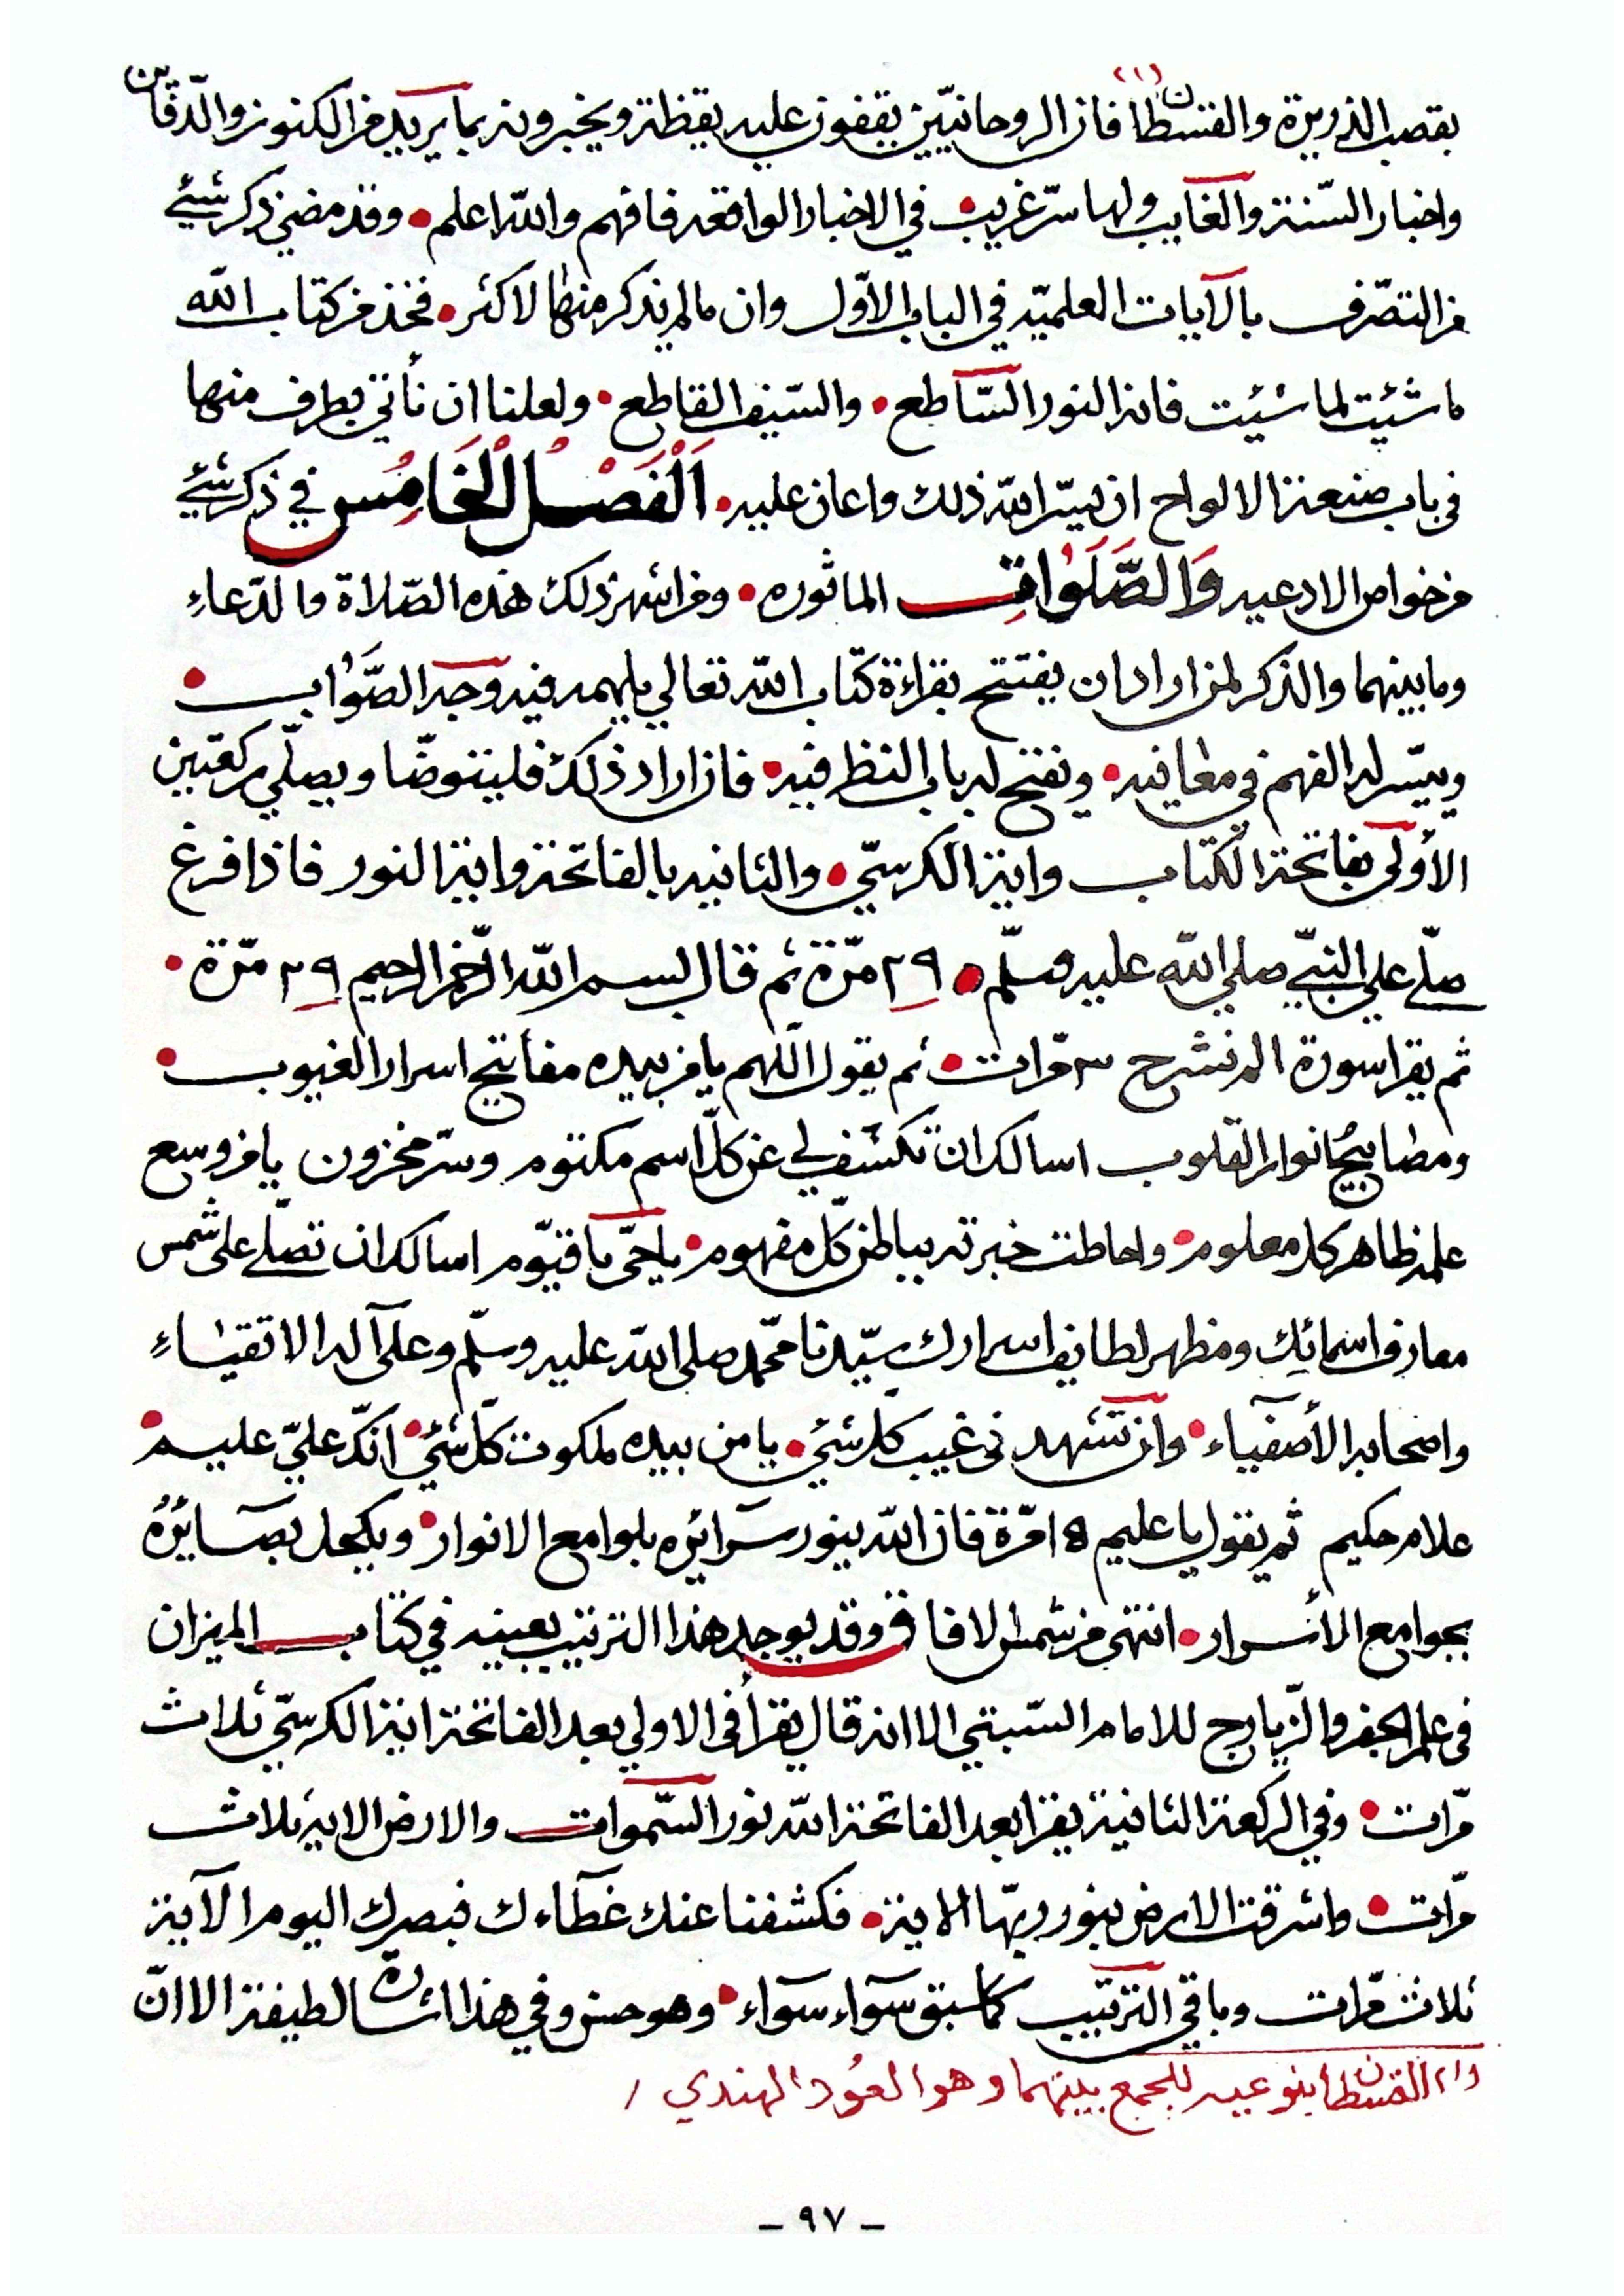 بقصب الذريرة والقسطان(١) فان الروحانيّين يقفون عليه يقظة ويخبرونه بما يريد من الكنوز والدّقاين
واخبار السّنة والغايب ولها سرّ غريب في الاخبار الواقعه فافهم والله اعلم • وقد مضى ذكر شيئ
من التصّرف بالآيات العلميّه في الباب الاوّل وان مالم يذكر منها لاكثر • فخذ من كتاب الله
ما شئت لما شئت فانه النور السّاطع • والسّيف القاطع • ولعلنا ان نأتي بطرف منها
في باب صنعة الالواح ان يسّر الله ذلك واعان عليه • اَلْفَصْلُ الْخَامِسُ في ذكر شيئ
من خواص الادعيه وَالصَّلَوٰاتِ الماثوره • ومن اشهر ذلك هذه الصّلاة والدّعاءِ
وما بينهما والذكر لمن اراد ان يفتتح بقراءة كتاب الله تعالي يلهمه فيه وجه الصَّوٰاب •
وييسّر له الفهم في معانيه • ويفتح له باب النظر فيه • فان اراد ذلك فليتوضّا ويصلّي ركعتين
الأولى بفاتحة الكتاب واية الكرسيّ • والثانيه بالفاتحة واية النور فاذا فرغ
صلّى علي النبيّ صلي الله عليه وسلّم • ٢٩ مرّة ثم قال بسم الله الرّحمن الرحيم ٢٩ مرّة •
ثم يقرا سورة الم نشرح ٣ مرّات • ثم يقول اللّهم يا من بيده مفاتيح اسرار الغيوب •
ومصابيحُ انوار القلوب اسالك ان تكشف لي عن كلّ اسم مكتوم وسرّ مخزون يا من وسع
علمه ظاهر كل معلوم • واحاطت خبرته بباطن كلّ مفهوم • يا حّى يا قيّوم اسالك ان تصلّي على شمس
معارف اسمائِك ومظهر لطايف اسرارك سيّدنا محّمد صلى الله عليه وسلّم وعلى آله الاتقيٰاءِ
واصحابه الأصفيآء • وان تشهدني غيب كلّ شيئ • يا من بيده ملكوت كلّ شيْئٍ • انّك عليّ عليم •
علام حكيم ثم يقول يا عليم ١٥ مرّة فان الله ينور سرائره بلوامع الانوار • ويكحل بصَائِرُهُ
بجوامع الأسرار • انتهى من شمس الافاق وقد يوجد هذا الترتيب بعينه في كتاب الميزان
في علم الجفر والزّيارج للامام السّبتي الا انه قال يقرأ في الاولي بعد الفاتحة اية الكرسيّ ثلاث
مرّات • وفي الركعة الثانية يقرا بعد الفاتحة الله نور السّموات والارض الايه ثلاث
مرّات • واشرقت الارض بنور ربّها الاية • فكشفنا عنك غطآءك فبصرك اليوم الآية
ثلاث مرّات وباقي الترتيب كما سبق سوآء سوآء • وهو حسن وفي هذا اشارة لطيفة الا انّ
(١) القسطان بنوعيه للجمع بينهما وهو العُود الهندي /
- ٩٧ -